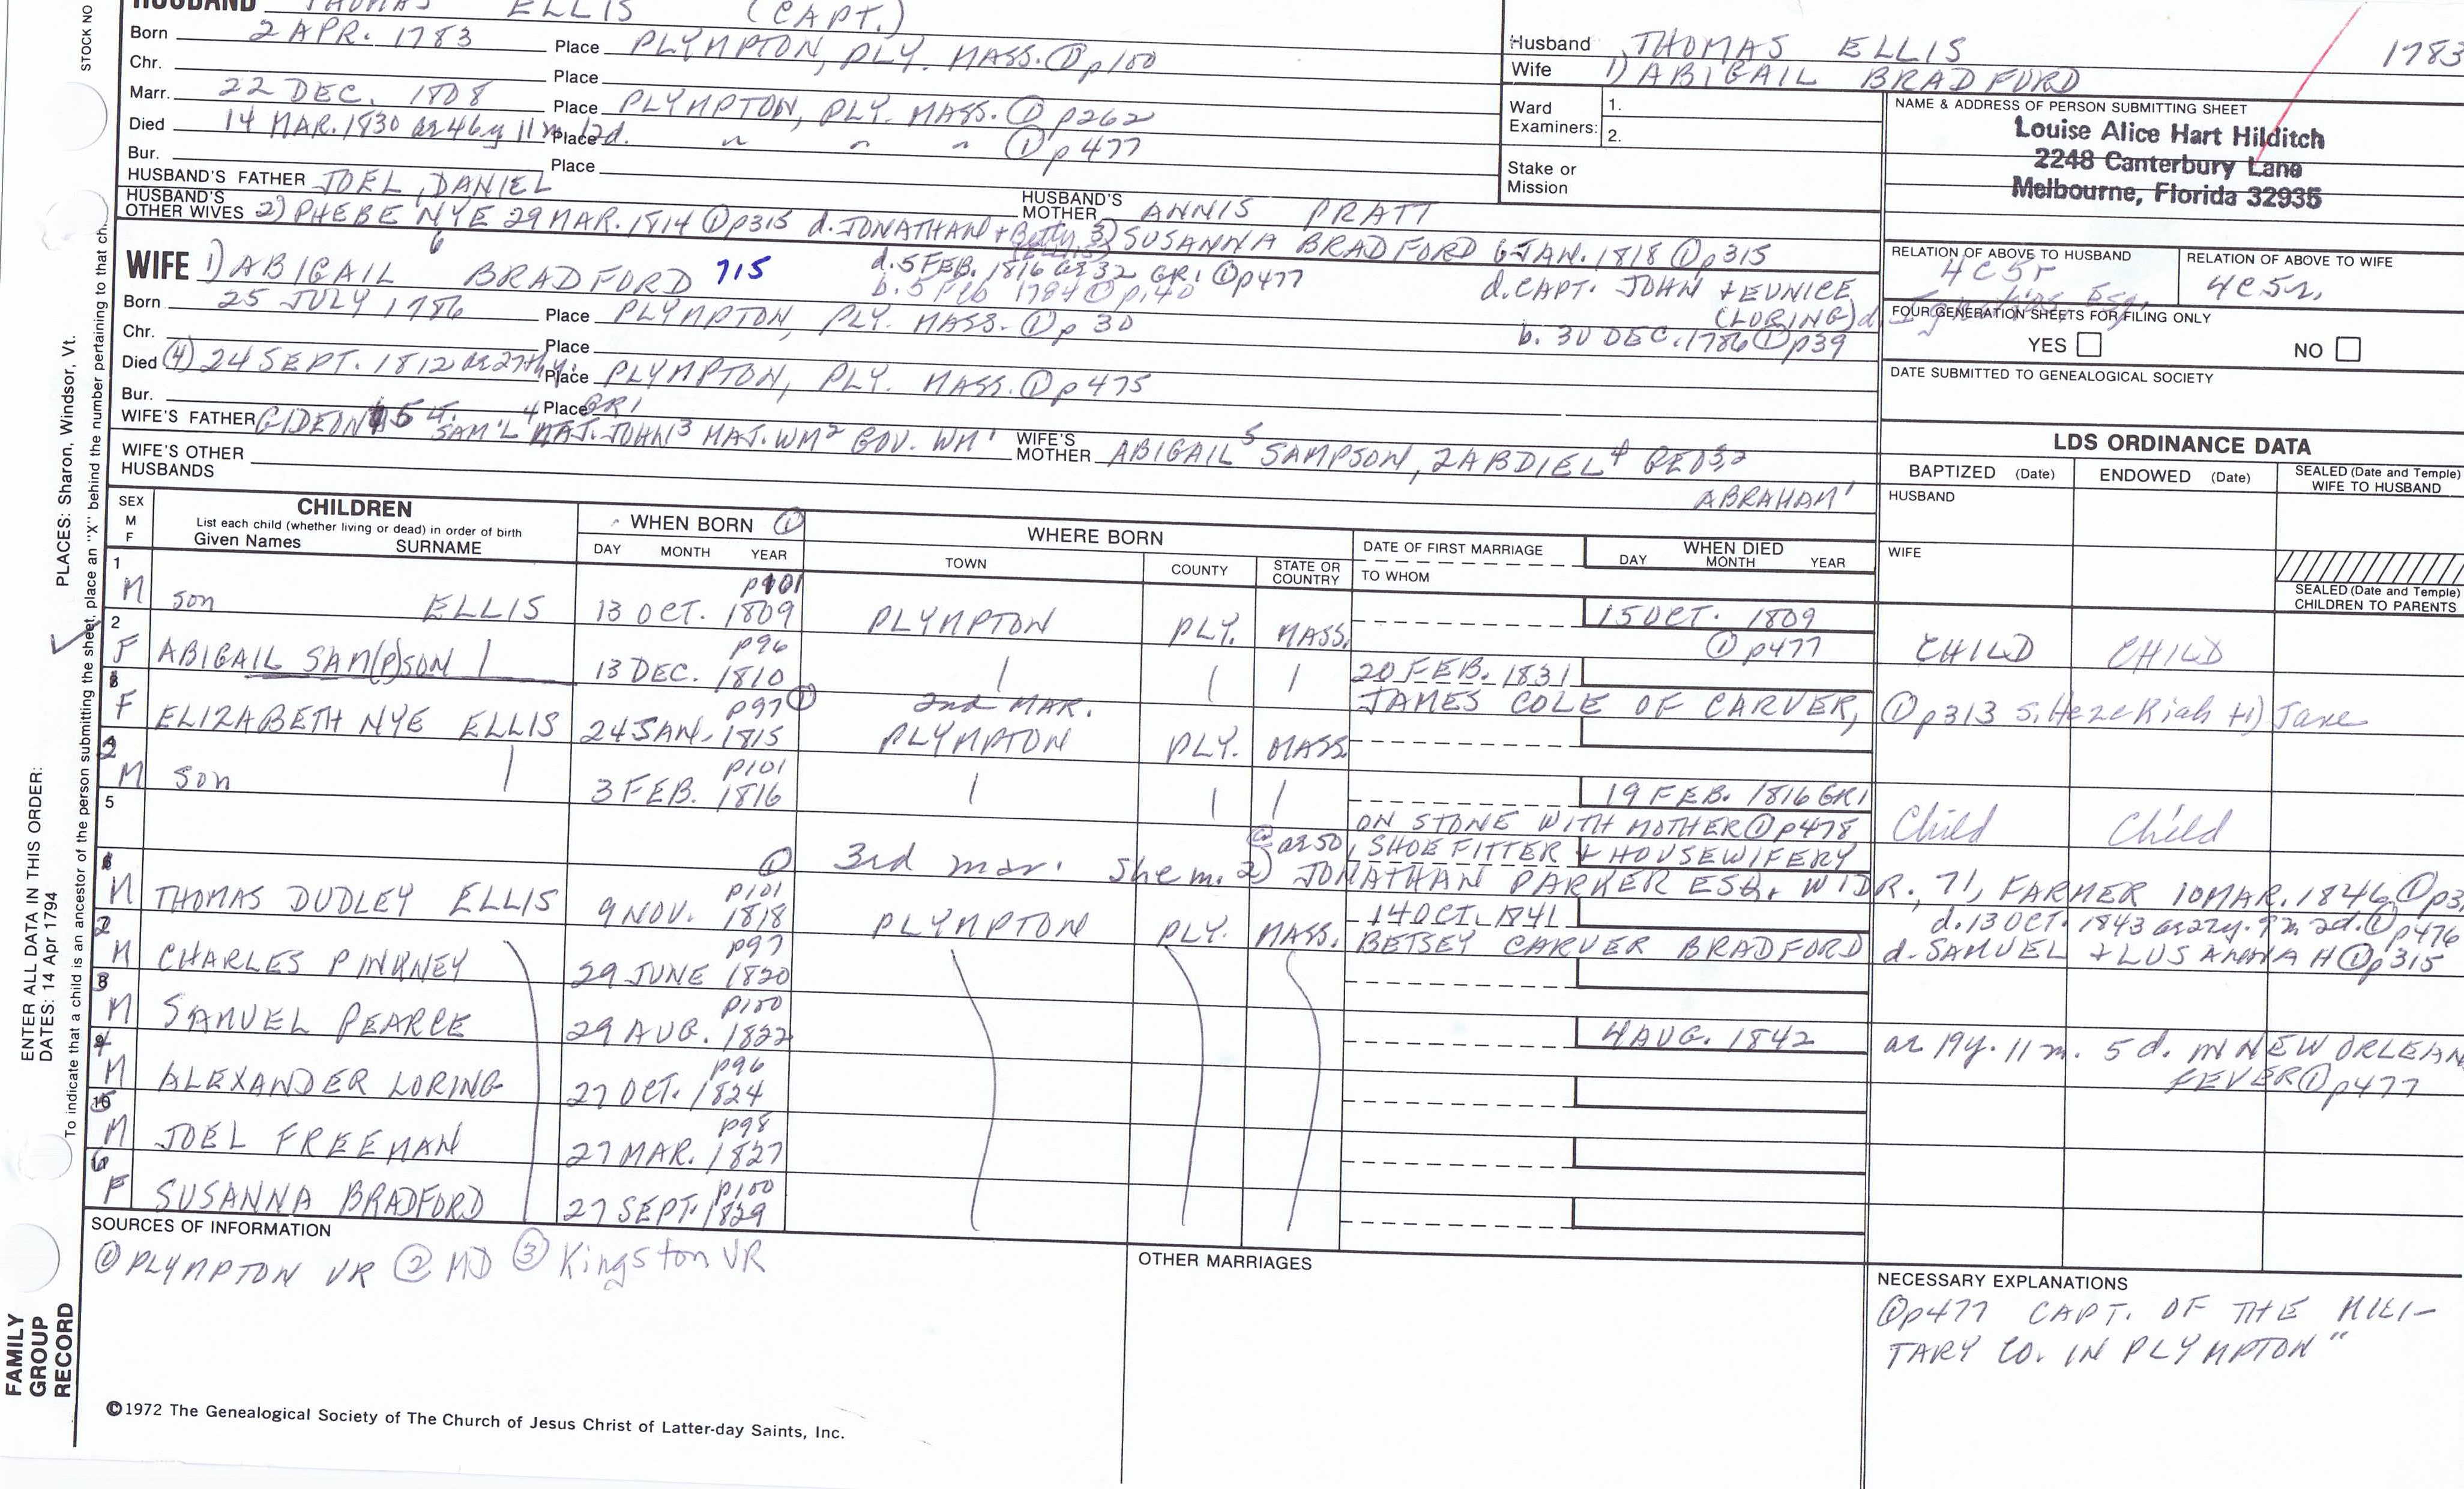 HUSBAND THOMAS ELLIS (CAPT.)
Born 2 APR. 1783 Place PLYMPTON, PLY. MASS. ① p100
Chr. Place
Marr. 22 DEC. 1808 Place PLYMPTON, PLY. MASS. ① p262
Died 14 MAR. 1830 ae 46y 11m 12d. Place " " " ① p477
Bur. Place
HUSBAND'S FATHER JOEL, DANIEL HUSBAND'S MOTHER ANNIS PRATT
HUSBAND'S OTHER WIVES 2) PHEBE NYE 29 MAR. 1814 ① p315 d. JONATHAN + 3) SUSANNA BRADFORD 6 JAN. 1818 ① p315
d. 5 FEB. 1816 ae 32 GR1 ① p477
b. 5 Feb 1784 ① p140
d. CAPT. JOHN + EUNICE
(LORING) d.
b. 30 DEC. 1786 ① p39
WIFE 1) ABIGAIL 6 BRADFORD 715
Born 25 JULY 1786 Place PLYMPTON, PLY. MASS. ① p 30
Chr. Place
Died (4) 24 SEPT. 1812 ae 27thy. Place PLYMPTON, PLY. MASS. ① p475
Bur. Place GR1
WIFE'S FATHER GIDEON 5 SAM'L 4 MAJ. JOHN 3 MAJ. WM 2 GOV. WM 1 WIFE'S MOTHER ABIGAIL 5 SAMPSON, ZABDIEL 4 GEO 3,2
ABRAHAM 1
WIFE'S OTHER HUSBANDS
Husband THOMAS ELLIS 1783
Wife 1) ABIGAIL BRADFORD
Ward Examiners: 1.
2.
Stake or Mission
NAME & ADDRESS OF PERSON SUBMITTING SHEET
Louise Alice Hart Hilditch
2248 Canterbury Lane
Melbourne, Florida 32935
RELATION OF ABOVE TO HUSBAND 4C5r
RELATION OF ABOVE TO WIFE 4C5r.
FOUR GENERATION SHEETS FOR FILING ONLY
YES NO
DATE SUBMITTED TO GENEALOGICAL SOCIETY
LDS ORDINANCE DATA
BAPTIZED (Date) ENDOWED (Date) SEALED (Date and Temple) WIFE TO HUSBAND
HUSBAND
WIFE
SEALED (Date and Temple) CHILDREN TO PARENTS
SEX M F
CHILDREN
List each child (whether living or dead) in order of birth
Given Names SURNAME
WHEN BORN ①
DAY MONTH YEAR
WHERE BORN
TOWN COUNTY STATE OR COUNTRY
DATE OF FIRST MARRIAGE
TO WHOM
WHEN DIED
DAY MONTH YEAR
1 M son ELLIS 13 OCT. 1809 p101 PLYMPTON PLY. MASS. 15 OCT. 1809 ① p477 CHILD CHILD
2 F ABIGAIL SAM(P)SON 13 DEC. 1810 p96 20 FEB. 1831
JAMES COLE OF CARVER, ① p313 s. Hezekiah + 1) Jane
F ELIZABETH NYE ELLIS 24 JAN. 1815 p97 ① 2nd MAR. PLYMPTON PLY. MASS
2 M son 3 FEB. 1816 p101 19 FEB. 1816 GR1
ON STONE WITH MOTHER ① p478 Child Child
5
② ae 50, SHOE FITTER + HOUSEWIFERY
① 3rd mar. She m. 2) JONATHAN PARKER ESQ. WIDR., 71, FARMER 10 MAR. 1846 ① p3
M THOMAS DUDLEY ELLIS 9 NOV. 1818 p101 PLYMPTON PLY. MASS. 14 OCT. 1841
d. 13 OCT. 1843 ae 22y. 9m 2d. ① p476
BETSEY CARVER BRADFORD d. SAMUEL + ① p315
2 M CHARLES PINKNEY 29 JUNE 1820 p97
3 M SAMUEL PEARCE 29 AUG. 1822 p100 4 AUG. 1842 ae 19y. 11m. 5d. IN NEW ORLEAN
FEVER ① p477
4 M ALEXANDER LORING 27 OCT. 1824 p96
M JOEL FREEMAN 27 MAR. 1827 p98
6 F SUSANNA BRADFORD 27 SEPT. 1829 p100
SOURCES OF INFORMATION
① PLYMPTON VR ② MD ③ Kingston VR
OTHER MARRIAGES
NECESSARY EXPLANATIONS
① p477 CAPT. OF THE MILI-
TARY CO. IN PLYMPTON"
©1972 The Genealogical Society of The Church of Jesus Christ of Latter-day Saints, Inc.
STOCK NO
PLACES: Sharon, Windsor, Vt.
To indicate that a child is an ancestor of the person submitting the sheet, place an "X" behind the number pertaining to that ch
ENTER ALL DATA IN THIS ORDER:
DATES: 14 Apr 1794
FAMILY
GROUP
RECORD